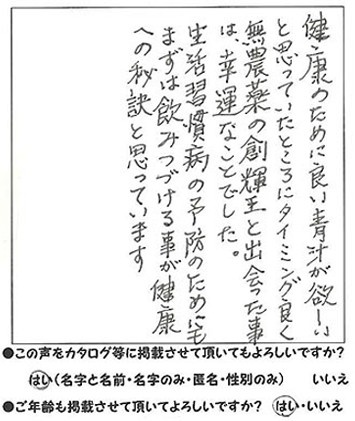 健康のために良い青汁が欲しい
と思っていたところにタイミング良く
無農薬の創輝王と出会った事
は、幸運なことでした。
生活習慣病の予防のためにも
まずは飲みつづける事が健康
への秘訣と思っています
●この声をカタログ等に掲載させて頂いてもよろしいですか?
はい(名字と名前・名字のみ・匿名・性別のみ) いいえ
●ご年齢も掲載させて頂いてよろしいですか? はい・いいえ